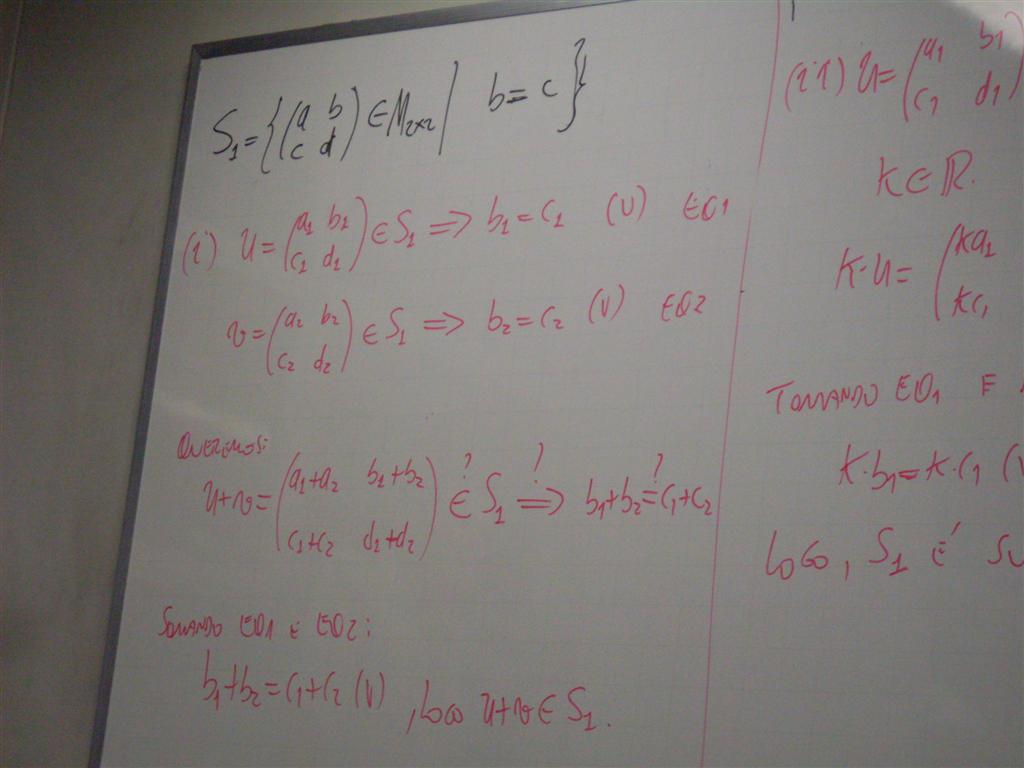 S₁={(a b
c d) ∈ M₂ₓ₂ | b = c}
(i) u = (a₁ b₁
c₁ d₁) ∈ S₁ ⟹ b₁ = c₁ (V) EQ1
v = (a₂ b₂
c₂ d₂) ∈ S₁ ⟹ b₂ = c₂ (V) EQ2
QUEREMOS:
u+v = (a₁+a₂ b₁+b₂
c₁+c₂ d₂+d₂) ∈? S₁ ⟹? b₁+b₂ =? c₁+c₂
SOMANDO EQ1 E EQ2:
b₁+b₂ = c₁+c₂ (V), LOGO u+v ∈ S₁.
(ii) U = (a₁ b₁
c₁ d₁)
K ∈ ℝ.
K·u = (ka₁
kc₁
TOMANDO EQ1 E
K·b₁ = K·c₁ (
LOGO, S₁ É